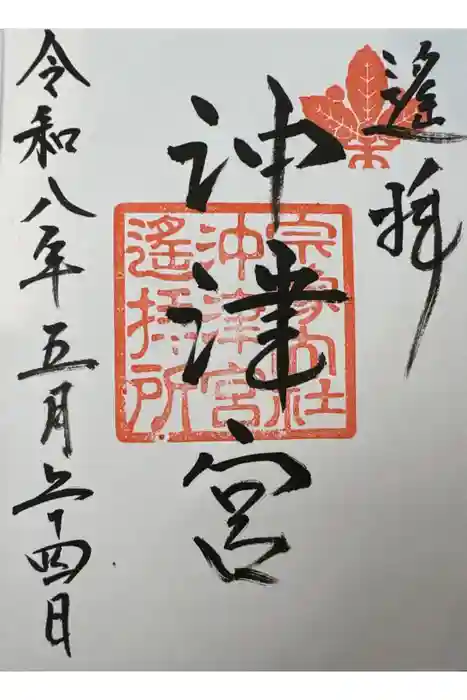 遙拝
沖津宮
宗像大社
沖津宮
遙拝所
令和八年五月二十四日